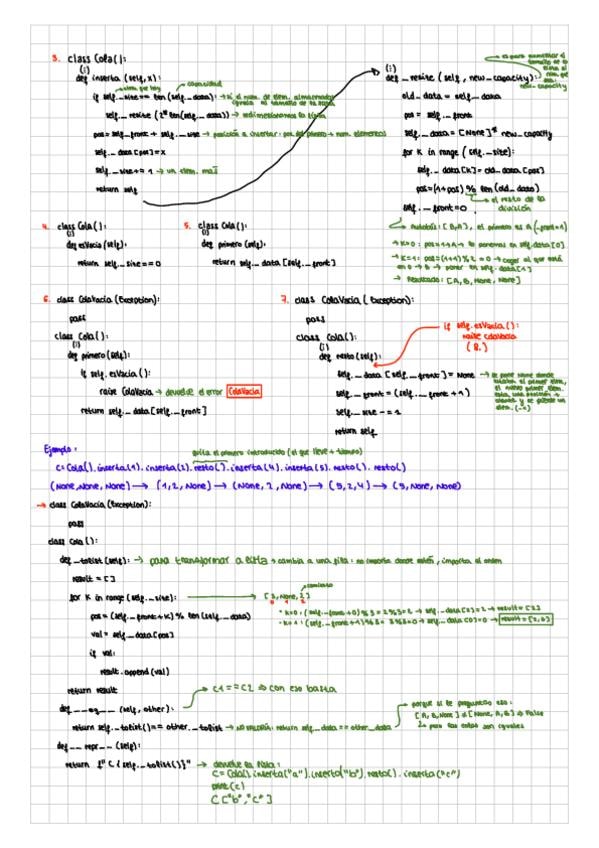 3. class Cola():
(:)
def inserta (self, x):
if self._size == len(self._data): → si el num. de elem. almacenados
capacidad
self._resize (2*len(self._data)) → redimensionamos la lista
pos = self._front + self._size → posición a insertar: pos del primero + num. elementos
self._data[pos] = x
self._size += 1 → un elem. más
return self
(:)
def _resize (self, new_capacity):
new_capacity
old_data = self._data
pos = self._front
self._data = [None] * new_capacity
for K in range (self._size):
self._data[K] = old_data[pos]
pos = (1+pos) % len(old_data)
→ el resto de la división
self._front = 0
→ Autobús: [B,A], el primero es A (_front=1)
→ K=0: pos=1 → A → lo ponemos en self.data[0]
→ K=1: pos=(1+1)%2=0 → coger al que está
en 0 → B → poner en self.data[1]
→ Resultado: [A, B, None, None]
4. class Cola():
(:)
def esVacia (self):
return self._size == 0
5. class Cola():
(:)
def primero (self):
return self._data [self._front]
6. class ColaVacia (Exception):
pass
class Cola():
(:)
def primero (self):
if self.esVacia ():
raise ColaVacia → devuelve el error ColaVacia
return self._data [self._front]
7. class ColaVacia (Exception):
pass
class Cola():
(:)
def resto (self):
if self.esVacia ():
raise ColaVacia
self._data [self._front] = None → se pone None donde
estaba el primer elem,
self._front = (self._front + 1)
self._size -= 1
return self
Ejemplo:
quita el primero introducido (el que lleve + tiempo)
c = Cola().inserta(1).inserta(2).resto().inserta(4).inserta(5).resto().resto()
(None, None, None) → (1, 2, None) → (None, 2, None) → (5, 2, 4) → (5, None, None)
→ class ColaVacia (Exception):
pass
class Cola ():
def _toList (self): → para transformar a lista → cambia a una fila: no importa donde estén, importa el orden
result = []
for K in range (self._size): → [3, None, 2]
0 1 2
pos = (self._front + K) % len (self._data)
* K=0: (self._front+0)%3 = 2%3 = 2 → self._data[2] = 2 → result = [2]
* K=1: (self._front+1)%3 = 3%3 = 0 → self._data[0] = 0 →
val = self._data[pos]
if val:
result.append (val)
return result
def __eq__ (self, other): → c1 == c2 ⇒ con eso basta
return self._toList() == other._toList → NO VALDRÍA: return self._data == other._data
porque si le preguntas eso:
[A, B, None] == [None, A, B] ⇒ False
↳ pero las colas son iguales
def __repr__ (self):
return f"C{self._toList()}" → devuelve la lista:
C = Cola().inserta("a").inserta("b").resto().inserta("c")
print(c)
C["b", "c"]